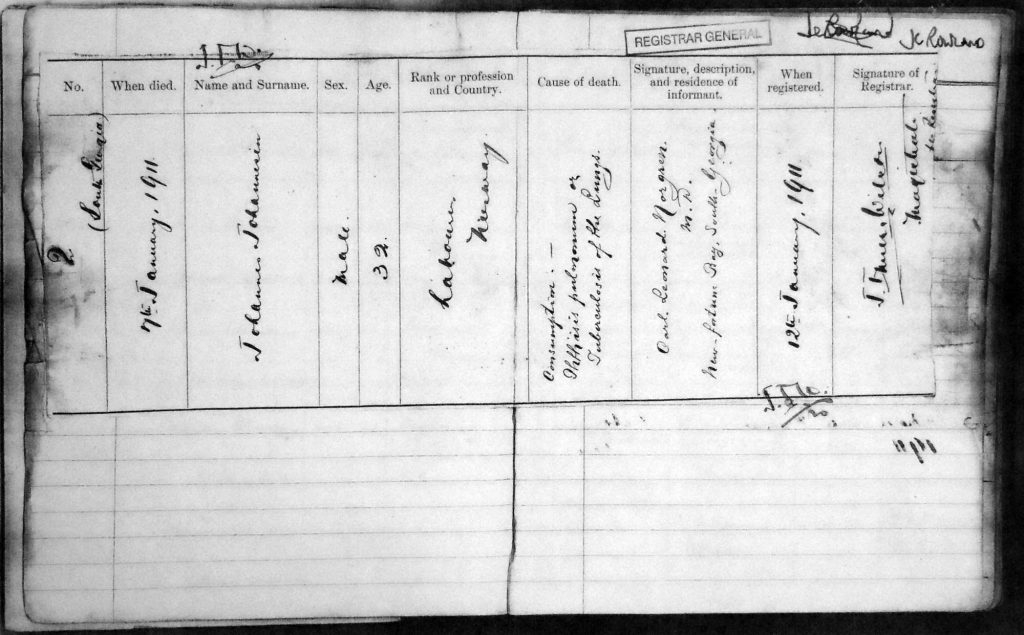 REGISTRAR GENERAL
No.
When died.
Name and Surname.
Sex.
Age.
Rank or profession
and Country.
Cause of death.
Signature, description,
and residence of
informant.
When
registered.
Signature of
Registrar.
2
(South Georgia)
7th January, 1911.
Johannes Johannesen
Male.
32
Labourer
Norway
Consumption:—
Phthisis pulmonum or
Tuberculosis of the Lungs.
Carl Leonard Norgren.
M.D.
New-fortune Bay, South-Georgia
12th January, 1911
J. Innes Wilson
Magistrate